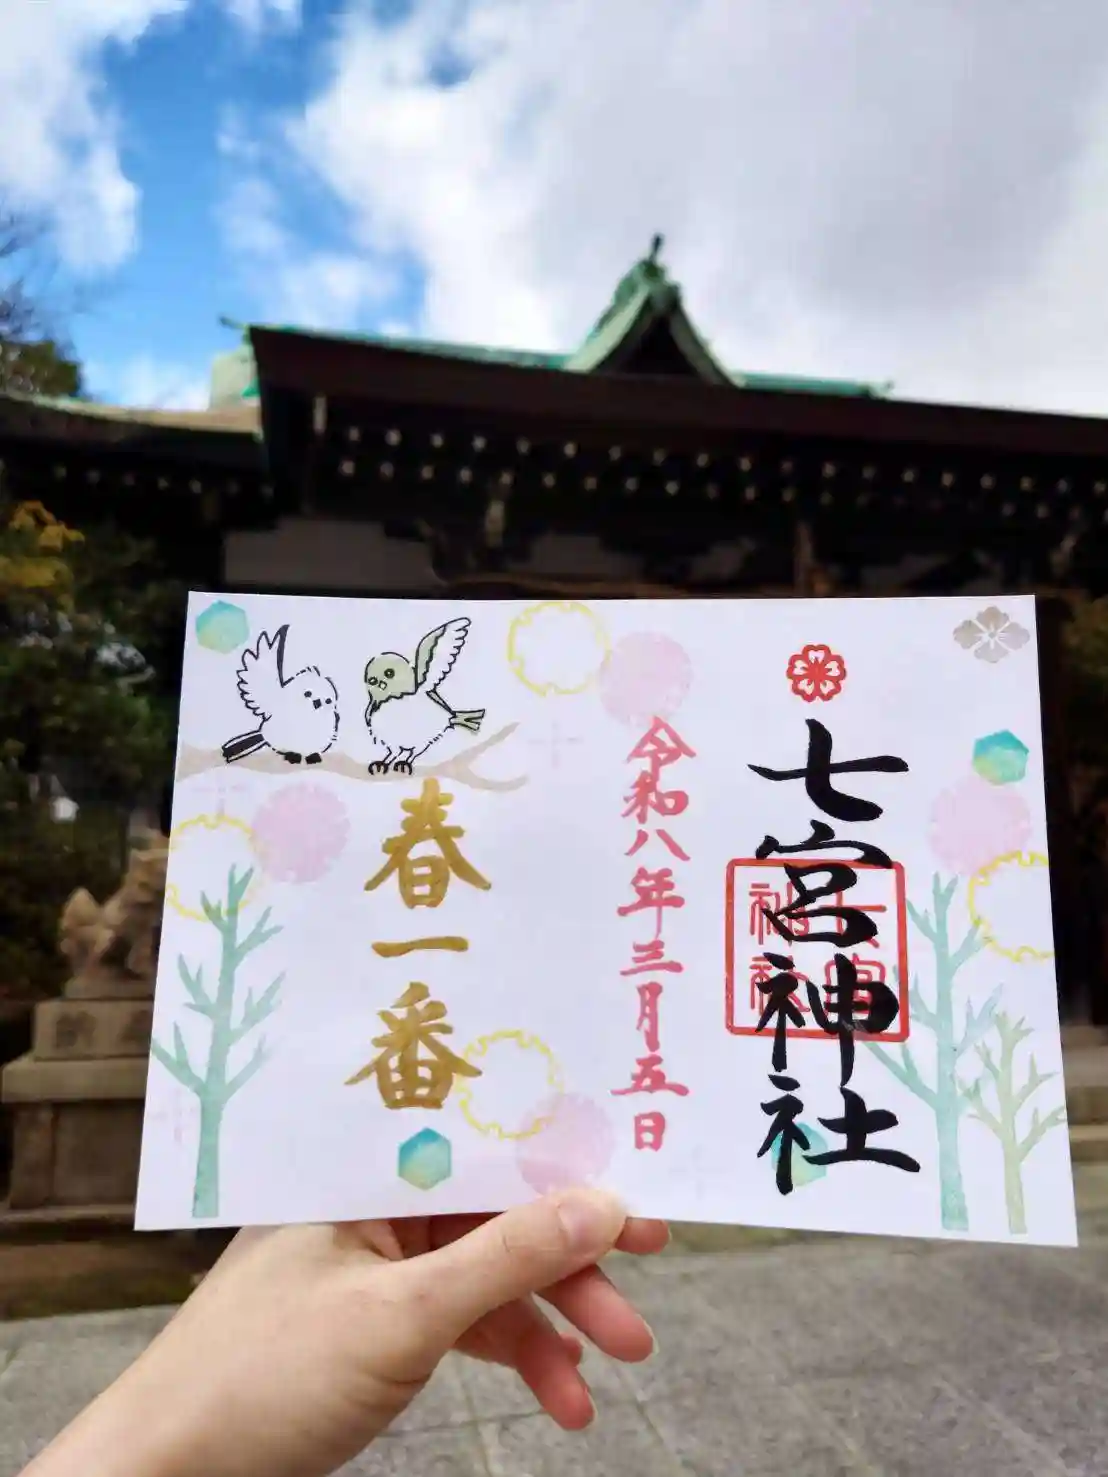 七宮神社
七宮
神社
令和八年三月五日
春一番